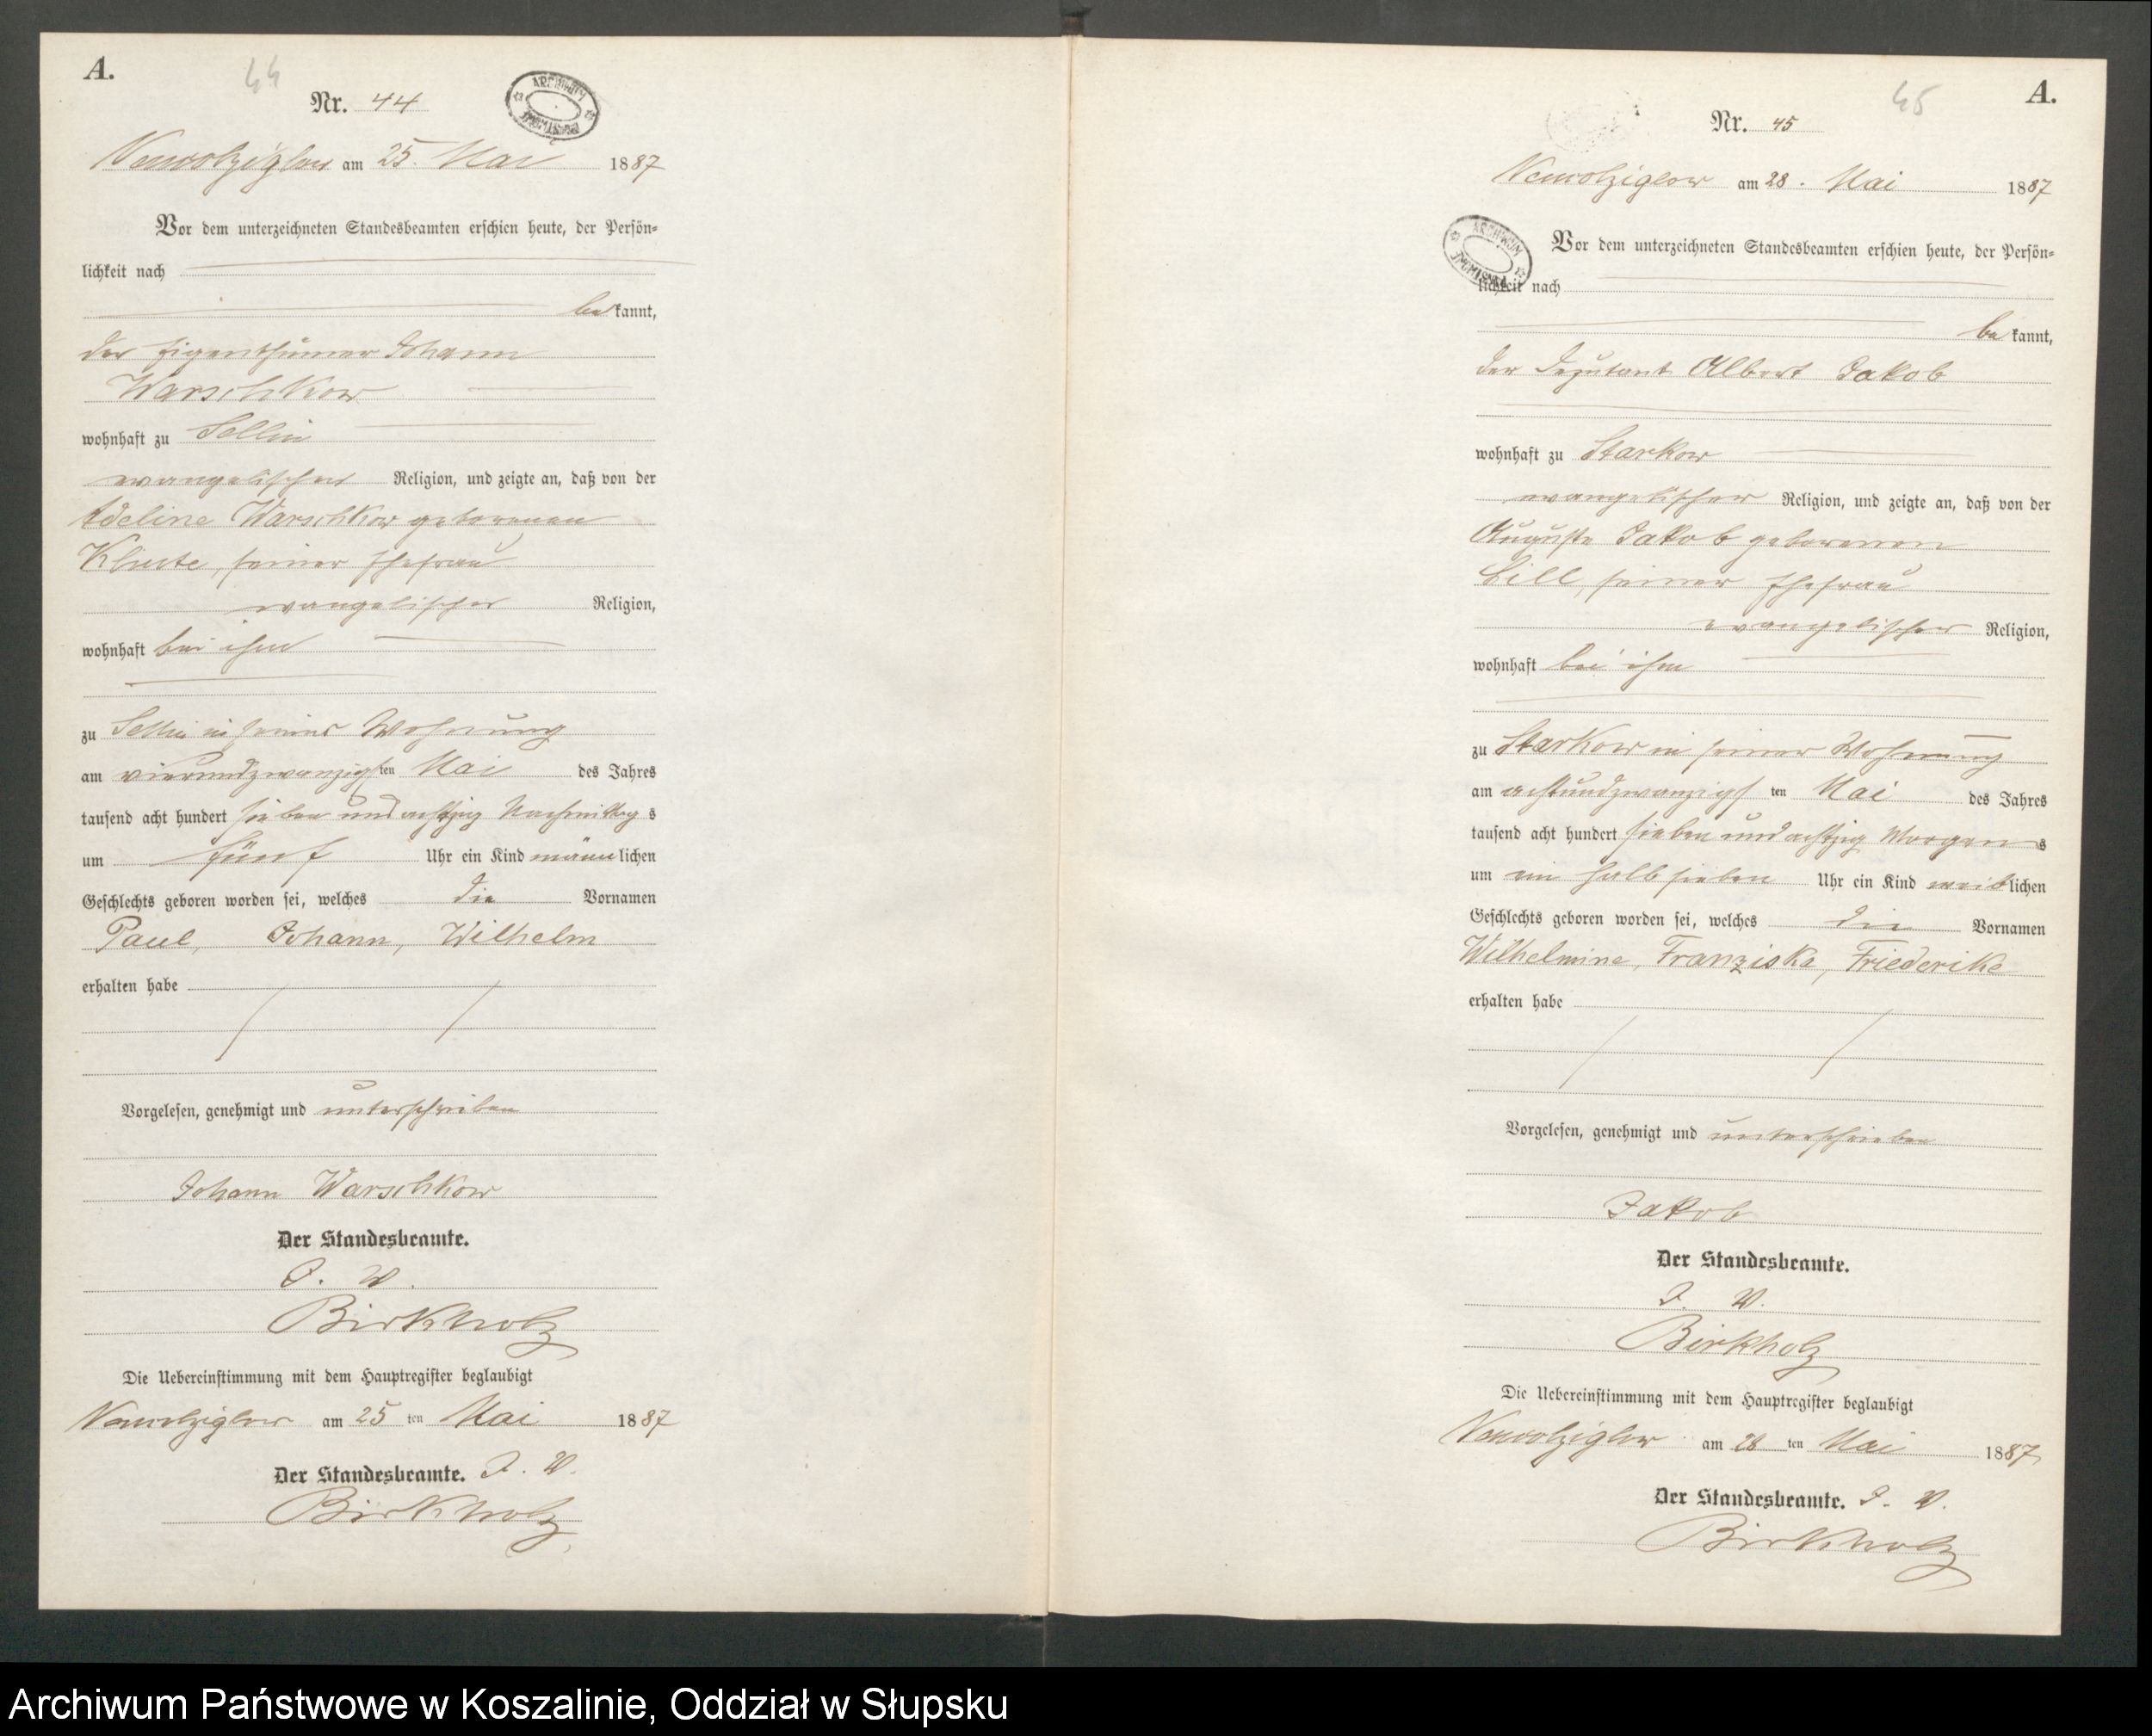 A.
44
Nr. 44
ARCHIWUM
PAŃSTWOWE
Neuwolziglow am 25. Mai 1887
Vor dem unterzeichneten Standesbeamten erschien heute, der Persön-
lichkeit nach
bekannt,
der Eigenthümer Johann
Warschkow
wohnhaft zu Sellin
evangelischer Religion, und zeigte an, daß von der
Adeline Warschkow geborenen
Klute, seiner Ehefrau
evangelischer Religion,
wohnhaft bei ihm
zu Sellin in seiner Wohnung
am vierundzwanzigsten Mai des Jahres
tausend acht hundert sieben und achtzig Nachmittags
um fünf Uhr ein Kind männlichen
Geschlechts geboren worden sei, welches die Vornamen
Paul, Johann, Wilhelm
erhalten habe
Vorgelesen, genehmigt und unterschrieben
Johann Warschkow
Der Standesbeamte.
J. V.
Birkholz
Die Uebereinstimmung mit dem Hauptregister beglaubigt
Neuwolziglow am 25 ten Mai 1887
Der Standesbeamte. J. V.
Birkholz
A.
45
Nr. 45
Neuwolziglow am 28. Mai 1887
ARCHIWUM
PAŃSTWOWE
Vor dem unterzeichneten Standesbeamten erschien heute, der Persön-
lichkeit nach
bekannt,
der Deputant Albert Jakob
wohnhaft zu Starkow
evangelischer Religion, und zeigte an, daß von der
Auguste Jakob geborenen
Lill, seiner Ehefrau
evangelischer Religion,
wohnhaft bei ihm
zu Starkow in seiner Wohnung
am achtundzwanzigsten Mai des Jahres
tausend acht hundert sieben und achtzig Morgens
um ein halb sieben Uhr ein Kind weiblichen
Geschlechts geboren worden sei, welches die Vornamen
Wilhelmine, Franziska, Friederike
erhalten habe
Vorgelesen, genehmigt und unterschrieben
Jakob
Der Standesbeamte.
J. V.
Birkholz
Die Uebereinstimmung mit dem Hauptregister beglaubigt
Neuwolziglow am 28 ten Mai 1887
Der Standesbeamte. J. V.
Birkholz
Archiwum Państwowe w Koszalinie, Oddział w Słupsku